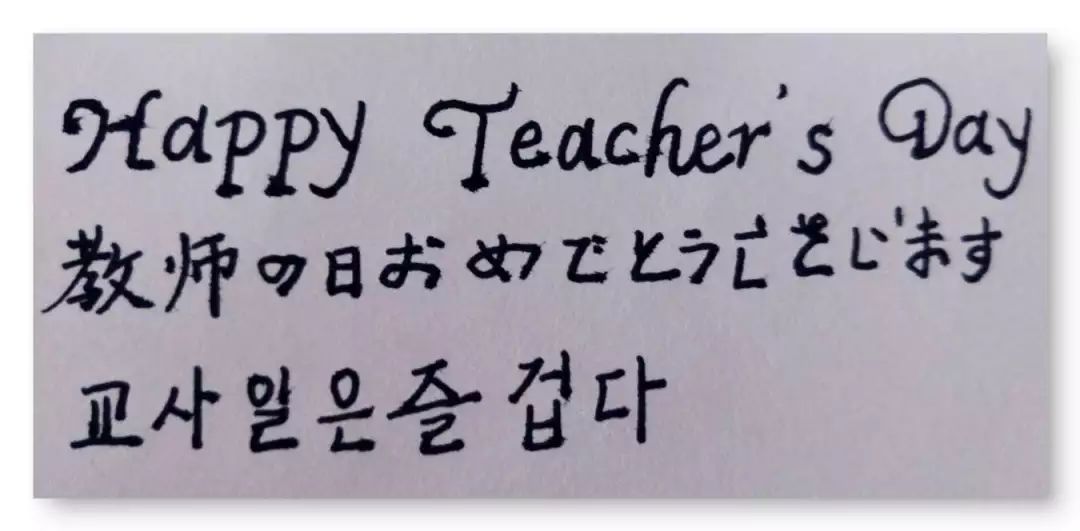 Happy Teacher's Day
教师の日おめでとうございます
교사일은즐겁다